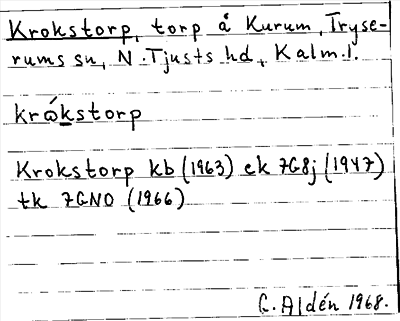 Krokstorp, torp å Kurum, Tryse-
rums sn, N. Tjusts hd, Kalm. l.
krώkstorp
Krokstorp kb (1963) ek 7G8j (1947)
tk 7GNO (1966)
C. Aldén 1968.